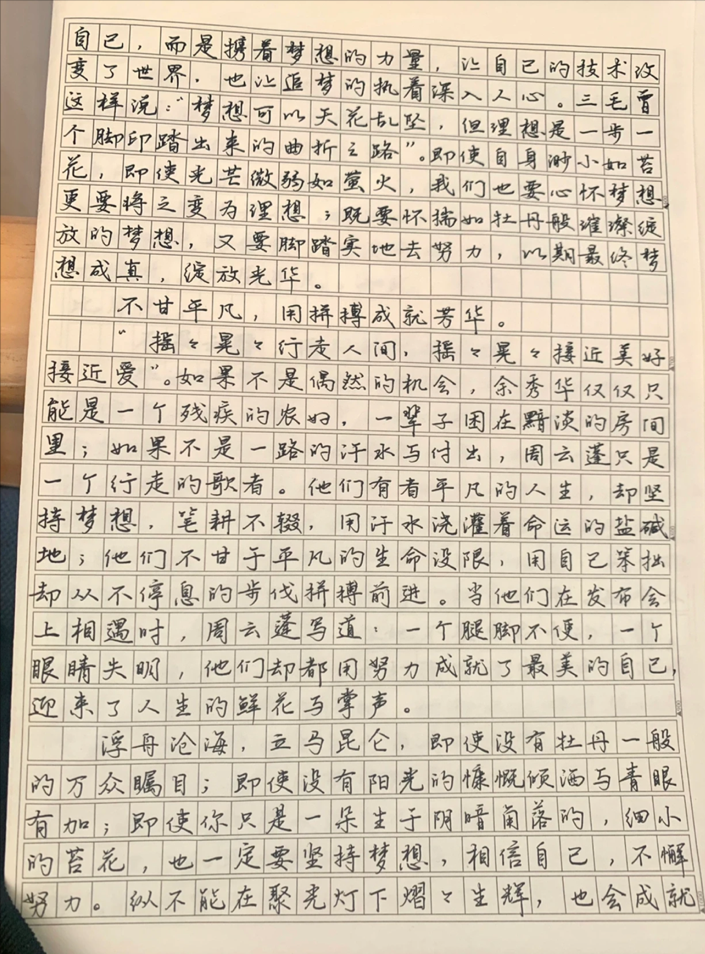 自己，而是携着梦想的力量，让自己的技术改
变了世界，也让追梦的执着深入人心。三毛曾
这样说："梦想可以天花乱坠，但理想是一步一
个脚印踏出来的曲折之路"。即使自身渺小如苔
花，即使光芒微弱如萤火，我们也要心怀梦想，
更要将之变为理想；既要怀揣如牡丹般璀璨绽
放的梦想，又要脚踏实地去努力，以期最终梦
想成真，绽放光华。
不甘平凡，用拼搏成就芳华。
"摇々晃々行走人间，摇々晃々接近美好
接近爱"。如果不是偶然的机会，余秀华仅仅只
能是一个残疾的农妇，一辈子困在黯淡的房间
里；如果不是一路的汗水与付出，周云蓬只是
一个行走的歌者。他们有着平凡的人生，却坚
持梦想，笔耕不辍，用汗水浇灌着命运的盐碱
地；他们不甘于平凡的生命没限，用自己笨拙
却从不停息的步伐拼搏前进。当他们在发布会
上相遇时，周云蓬写道：一个腿脚不便，一个
眼睛失明，他们却都用努力成就了最美的自己，
迎来了人生的鲜花与掌声。
浮舟沧海，立马昆仑，即使没有牡丹一般
的万众瞩目；即使没有阳光的慷慨倾洒与青眼
有加；即使你只是一朵生于阴暗角落的，细小
的苔花，也一定要坚持梦想，相信自己，不懈
努力。纵不能在聚光灯下熠々生辉，也会成就